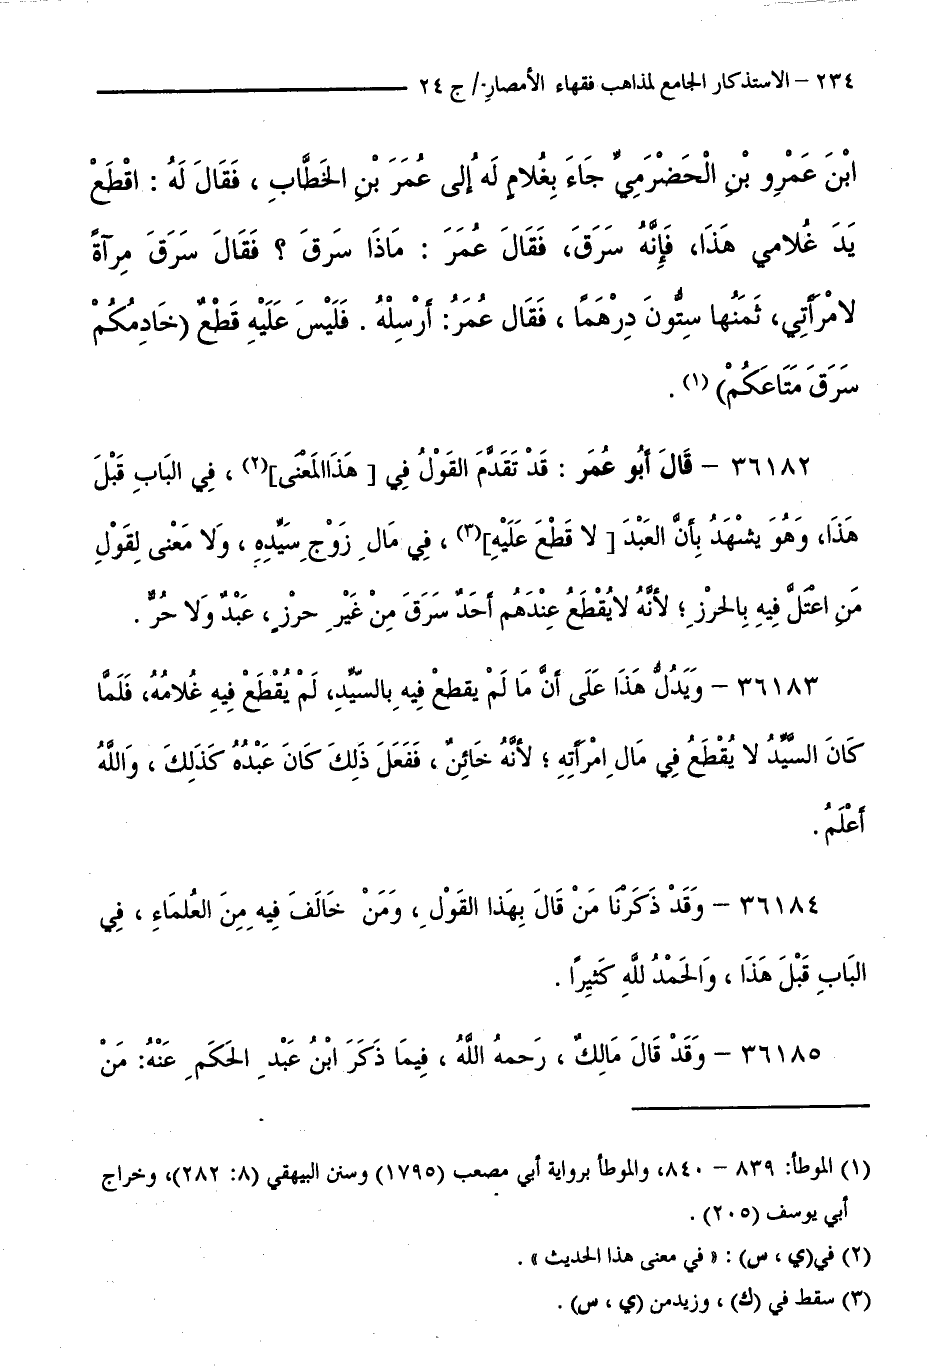 ٢٣٤ – الاستذكار الجامع لمذاهب فقهاء الأمصار / ج ٢٤
ابْنَ عَمْرِو بْنِ الْحَضْرَمِيِّ جَاءَ بِغُلامٍ لَهُ إِلى عُمَرَ بْنِ الخَطَّابِ ، فَقَالَ لَهُ : اقْطَعْ
يَدَ غُلامي هَذَا، فَإِنَّهُ سَرَقَ، فَقَالَ عُمَرَ : مَاذَا سَرقَ ؟ فَقَالَ سَرَقَ مِرآةً
لامْرَأَتِي، ثَمَنُها سِتُّونَ دِرْهَمًا ، فَقَال عُمَرُ: أَرْسِلْهُ . فَلَيْسَ عَلَيْهِ قَطْعٌ (خَادِمُكُمْ
سَرَقَ مَتَاعَكُمْ) (١) .
٣٦١٨٢ – قَالَ أَبُو عُمَر : قَدْ تَقَدَّمَ القَوْلُ فِي [ هَذَا المَعْنَى](٢) ، فِي البَابِ قَبْلَ
هَذَا، وَهُوَ يشْهَدُ بِأَنَّ العَبْدَ [ لا قَطْعَ عَلَيْهِ](٣) ، فِي مَالِ زَوْجِ سَيِّدِهِ ، وَلا مَعْنى لِقَوْلِ
مَنِ اعْتَلَّ فِيهِ بِالحرْزِ ؛ لأنَّهُ لايُقْطَعُ عِنْدَهُم أَحَدٌ سَرَقَ مِنْ غَيْرِ حرْزٍ، عَبْدٌ وَلا حُرٌّ .
٣٦١٨٣ – وَيَدُلُّ هَذَا عَلَى أنَّ مَا لَمْ يقطعْ فِيهِ بالسيِّدِ، لَمْ يُقْطَعْ فِيهِ غُلامُهُ، فَلَمَّا
كَانَ السَّيِّدُ لا يُقْطَعُ فِي مَالِ امْرَأَتِهِ ؛ لأنَّهُ خَائِنٌ ، فَفَعَلَ ذَلِكَ كَانَ عَبْدُهُ كَذَلِكَ ، وَاللَّهُ
أَعْلَمُ .
٣٦١٨٤ – وَقَدْ ذَكَرْنَا مَنْ قَالَ بِهَذا القَوْلِ ، وَمَنْ خَالَفَ فِيهِ مِنَ العُلمَاءِ ، فِي
البَابِ قَبْلَ هَذَا ، وَالحَمْدُ للَّهِ كَثِيرًا .
٣٦١٨٥ – وَقَدْ قَالَ مَالِكٌ ، رَحمهُ اللَّهُ ، فِيمَا ذَكَرَ ابْنُ عَبْدِ الحَكَمِ عَنْهُ: مَنْ
(١) الموطأ: ٨٣٩ – ٨٤٠، والموطأ برواية أبي مصعب (١٧٩٥) وسنن البيهقي (٨: ٢٨٢)، وخراج
أبي يوسف (٢٠٥) .
(٢) في(ي ، س) : « في معنى هذا الحديث » .
(٣) سقط في (ك) ، وزيدمن (ي ، س) .